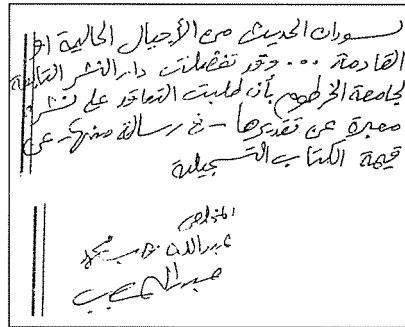 لسودان الحديث من الأجيال الحالية او
القادمة ... وقد تفضلت دار النشر التابعة
لجامعة الخرطوم بأن طلبت التعاقد على نشره
معبرة عن تقديرها - في رسالة منها - عن
قيمة الكتاب التسجيلية
المخلص
عبدالله رجب محمد
عبدالله رجب